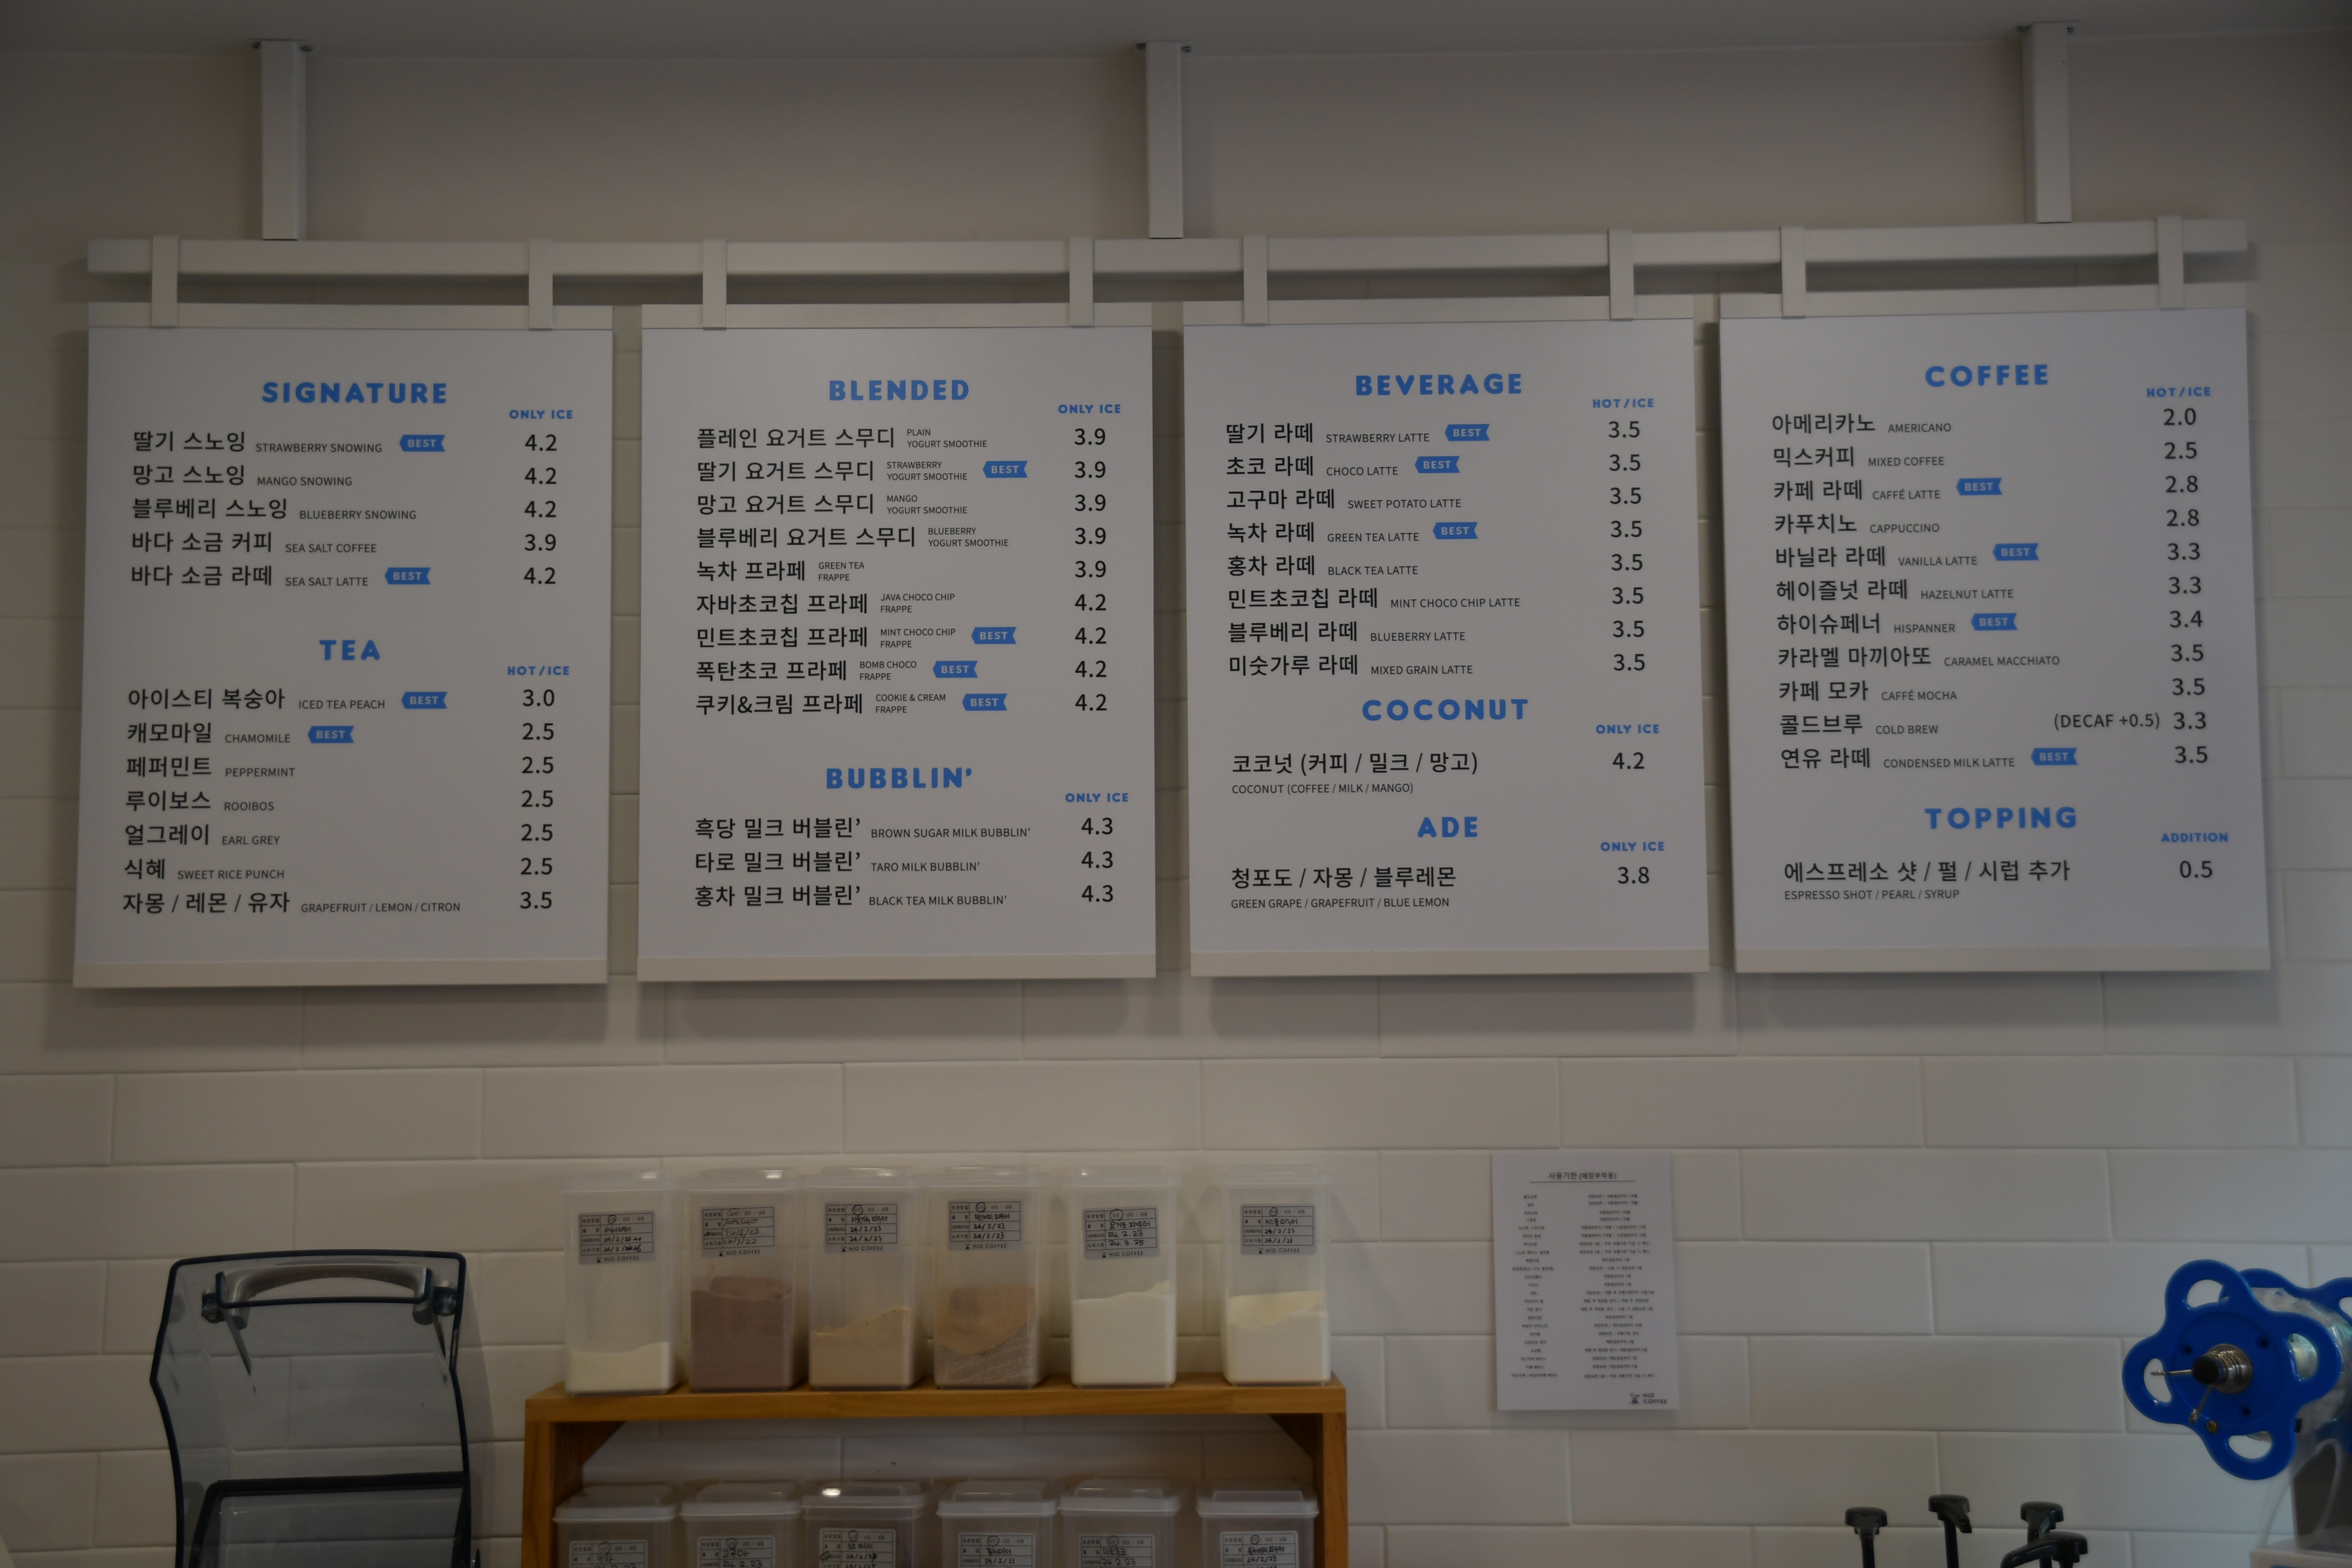 SIGNATURE
ONLY ICE
딸기 스노잉 STRAWBERRY SNOWING BEST 4.2
망고 스노잉 MANGO SNOWING 4.2
블루베리 스노잉 BLUEBERRY SNOWING 4.2
바다 소금 커피 SEA SALT COFFEE 3.9
바다 소금 라떼 SEA SALT LATTE BEST 4.2
TEA
HOT/ICE
아이스티 복숭아 ICED TEA PEACH BEST 3.0
캐모마일 CHAMOMILE BEST 2.5
페퍼민트 PEPPERMINT 2.5
루이보스 ROOIBOS 2.5
얼그레이 EARL GREY 2.5
식혜 SWEET RICE PUNCH 2.5
자몽 / 레몬 / 유자 GRAPEFRUIT / LEMON / CITRON 3.5
BLENDED
ONLY ICE
플레인 요거트 스무디 PLAIN YOGURT SMOOTHIE 3.9
딸기 요거트 스무디 STRAWBERRY YOGURT SMOOTHIE BEST 3.9
망고 요거트 스무디 MANGO YOGURT SMOOTHIE 3.9
블루베리 요거트 스무디 BLUEBERRY YOGURT SMOOTHIE 3.9
녹차 프라페 GREEN TEA FRAPPE 3.9
자바초코칩 프라페 JAVA CHOCO CHIP FRAPPE 4.2
민트초코칩 프라페 MINT CHOCO CHIP FRAPPE BEST 4.2
폭탄초코 프라페 BOMB CHOCO FRAPPE BEST 4.2
쿠키&크림 프라페 COOKIE & CREAM FRAPPE BEST 4.2
BUBBLIN'
ONLY ICE
흑당 밀크 버블린' BROWN SUGAR MILK BUBBLIN' 4.3
타로 밀크 버블린' TARO MILK BUBBLIN' 4.3
홍차 밀크 버블린' BLACK TEA MILK BUBBLIN' 4.3
BEVERAGE
HOT/ICE
딸기 라떼 STRAWBERRY LATTE BEST 3.5
초코 라떼 CHOCO LATTE BEST 3.5
고구마 라떼 SWEET POTATO LATTE 3.5
녹차 라떼 GREEN TEA LATTE BEST 3.5
홍차 라떼 BLACK TEA LATTE 3.5
민트초코칩 라떼 MINT CHOCO CHIP LATTE 3.5
블루베리 라떼 BLUEBERRY LATTE 3.5
미숫가루 라떼 MIXED GRAIN LATTE 3.5
COCONUT
ONLY ICE
코코넛 (커피 / 밀크 / 망고) 4.2
COCONUT (COFFEE / MILK / MANGO)
ADE
ONLY ICE
청포도 / 자몽 / 블루레몬 3.8
GREEN GRAPE / GRAPEFRUIT / BLUE LEMON
COFFEE
HOT/ICE
아메리카노 AMERICANO 2.0
믹스커피 MIXED COFFEE 2.5
카페 라떼 CAFFÉ LATTE BEST 2.8
카푸치노 CAPPUCCINO 2.8
바닐라 라떼 VANILLA LATTE BEST 3.3
헤이즐넛 라떼 HAZELNUT LATTE 3.3
하이슈페너 HISPANNER BEST 3.4
카라멜 마끼아또 CARAMEL MACCHIATO 3.5
카페 모카 CAFFÉ MOCHA 3.5
콜드브루 COLD BREW (DECAF +0.5) 3.3
연유 라떼 CONDENSED MILK LATTE BEST 3.5
TOPPING
ADDITION
에스프레소 샷 / 펄 / 시럽 추가 0.5
ESPRESSO SHOT / PEARL / SYRUP
HIO COFFEE
HIO COFFEE
HIO COFFEE
HIO COFFEE
HIO COFFEE
HIO COFFEE
HIO
COFFEE